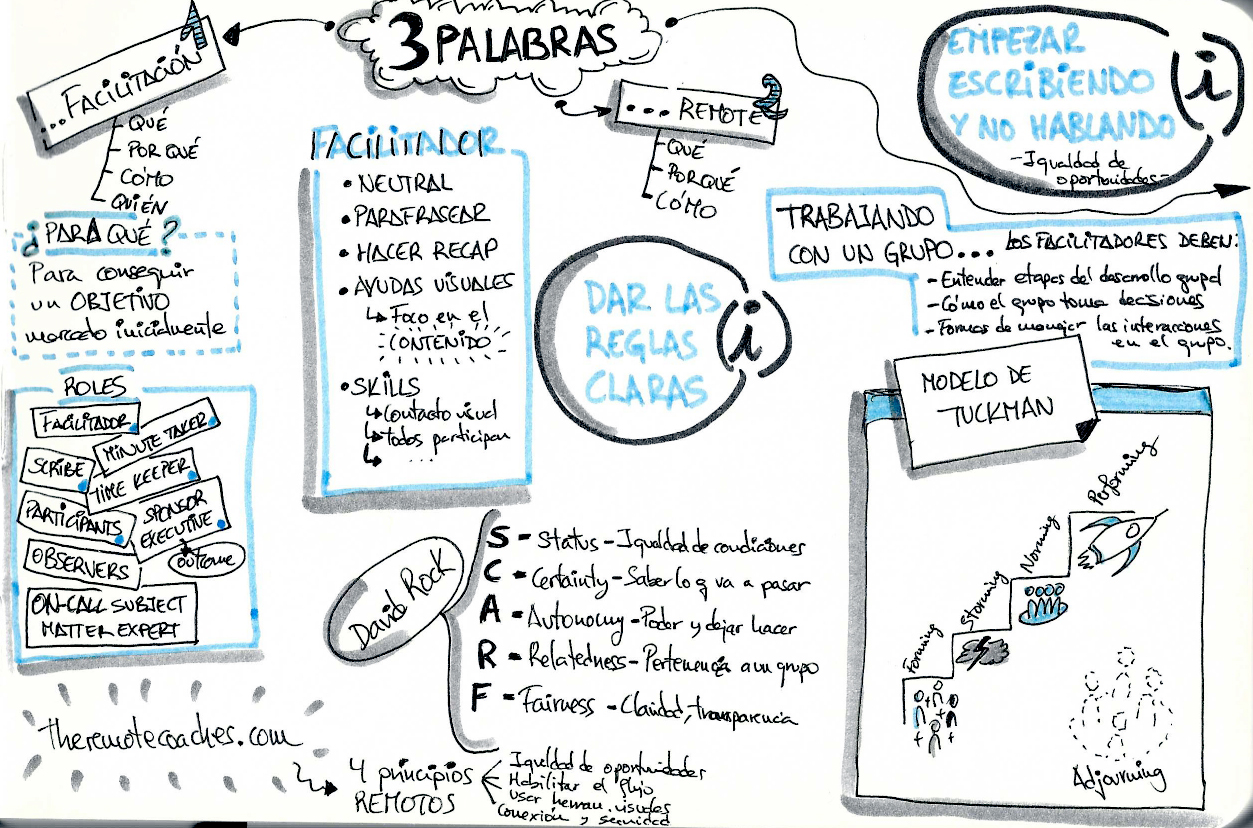 3 PALABRAS
...FACILITACIÓN
QUÉ
POR QUÉ
CÓMO
QUIÉN
¿PARA QUÉ?
Para conseguir
un OBJETIVO
marcado inicialmente
ROLES
FACILITADOR
MINUTE TAKER
SCRIBE
TIME KEEPER
PARTICIPANTS
SPONSOR
EXECUTIVE
outcome
OBSERVERS
ON-CALL SUBJECT
MATTER EXPERT
theremotecoaches.com
4 principios
REMOTOS
Igualdad de oportunidades
Habilitar el flujo
Usar herram. visuales
Conexión y seguridad
FACILITADOR
• NEUTRAL
• PARAFRASEAR
• HACER RECAP
• AYUDAS VISUALES
Foco en el
CONTENIDO
• SKILLS
Contacto visual
todos participan
...
... REMOTE
QUÉ
PORQUÉ
CÓMO
DAR LAS
REGLAS
CLARAS
i
EMPEZAR
ESCRIBIENDO
Y NO HABLANDO
i
-Igualdad de
oportunidades-
TRABAJANDO
CON UN GRUPO...
LOS FACILITADORES DEBEN:
- Entender etapas del desarrollo grupal
- Cómo el grupo toma decisiones
- Formas de manejar las interacciones
en el grupo.
David Rock
S = Status - Igualdad de condiciones
C = Certainty - Saber lo q va a pasar
A = Autonomy - Poder y dejar hacer
R = Relatedness - Pertenencia a un grupo
F = Fairness - Claridad, transparencia
MODELO DE
TUCKMAN
Forming
Storming
Norming
Performing
Adjourning